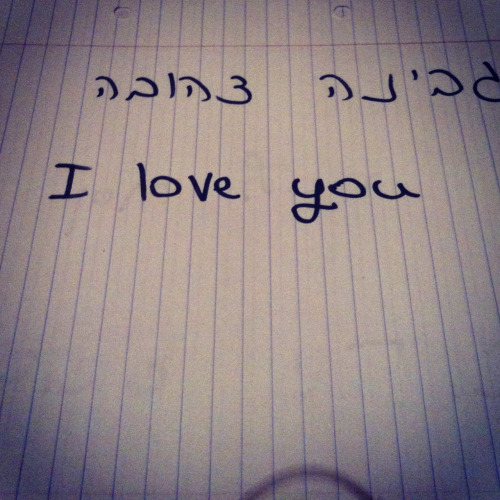 גבינה צהובה
I love you